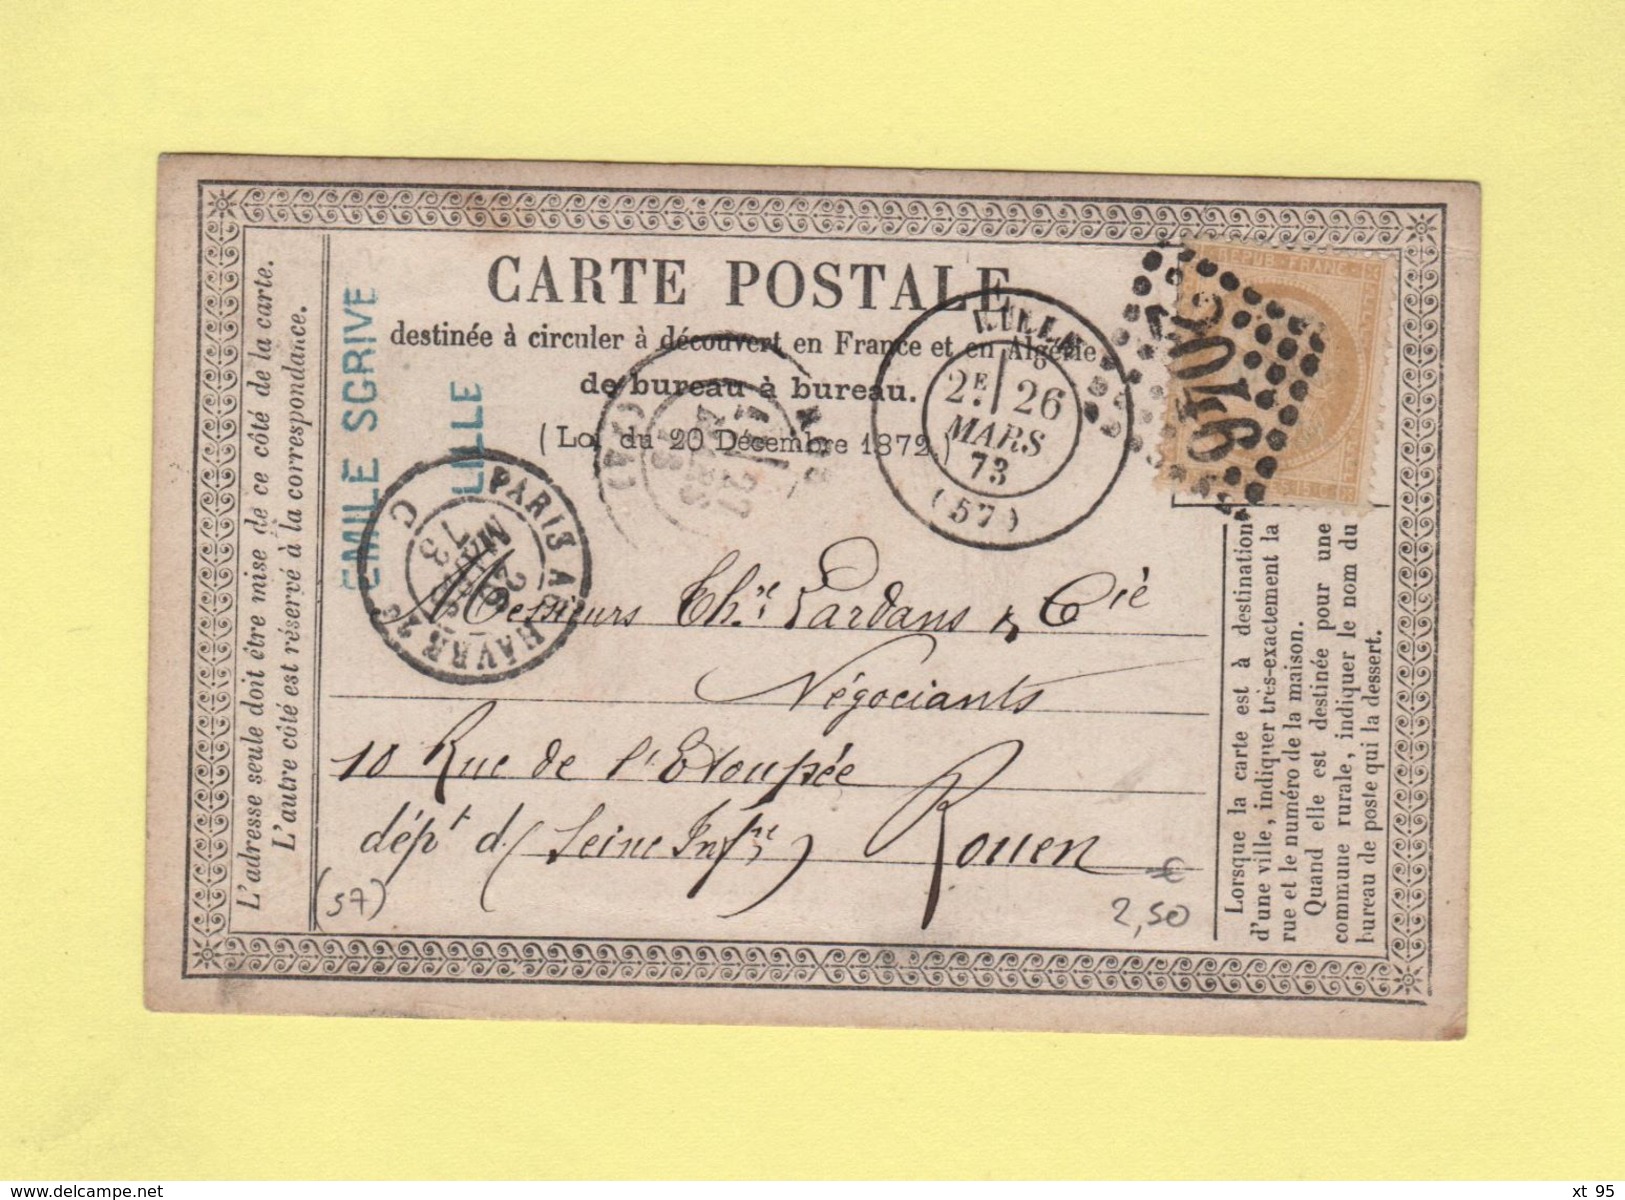 CARTE POSTALE
destinée à circuler à découvert en France et en Algérie
de bureau à bureau.
(Loi du 20 Décembre 1872.)
L'adresse seule doit être mise de ce côté de la carte.
L'autre côté est réservé à la correspondance.
EMILE SGRIVE
LILLE
PARIS AU HAVRE
C
26
MARS
73
LILLE
2E 26
MARS
73
(57)
REPUB FRANC
15 C
Messieurs Ch. & Cié
Négociants
10 Rue de l'Etoupée
dépt d (Seine Infre) Rouen
(57)
2,50 €
Lorsque la carte est à destination
d'une ville, indiquer très-exactement la
rue et le numéro de la maison.
Quand elle est destinée pour une
commune rurale, indiquer le nom du
bureau de poste qui la dessert.
xt 95